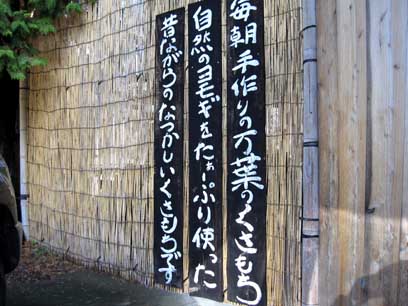 毎朝手作りの万葉のくさもち
自然のヨモギをたぁーぷり使った
昔ながらのなつかしいくさもちです